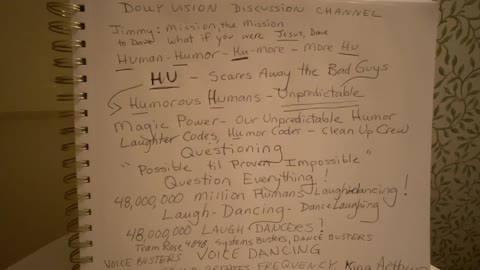 DOLLY VISION DISCUSSION CHANNEL
Jimmy: Mission, the Mission
to Dave What if you were Jesus, Dave
Human - Humor - Hu-more - More Hu
HU - Scares Away the Bad Guys
Humorous Humans - Unpredictable
Magic Power - Our Unpredictable Humor
Laughter Codes, Humor Codes - Clean Up Crew
Questioning
"Possible til Proven Impossible"
Question Everything!
48,000,000 million Humans Laughdancing!
Laugh-Dancing - DanceLaughing
48,000,000 LAUGH DANCERS!
Team Rose 4848, Systems Busters, DANCE BUSTERS
VOICE BUSTERS VOICE DANCING
FREQUENCY King Arthur